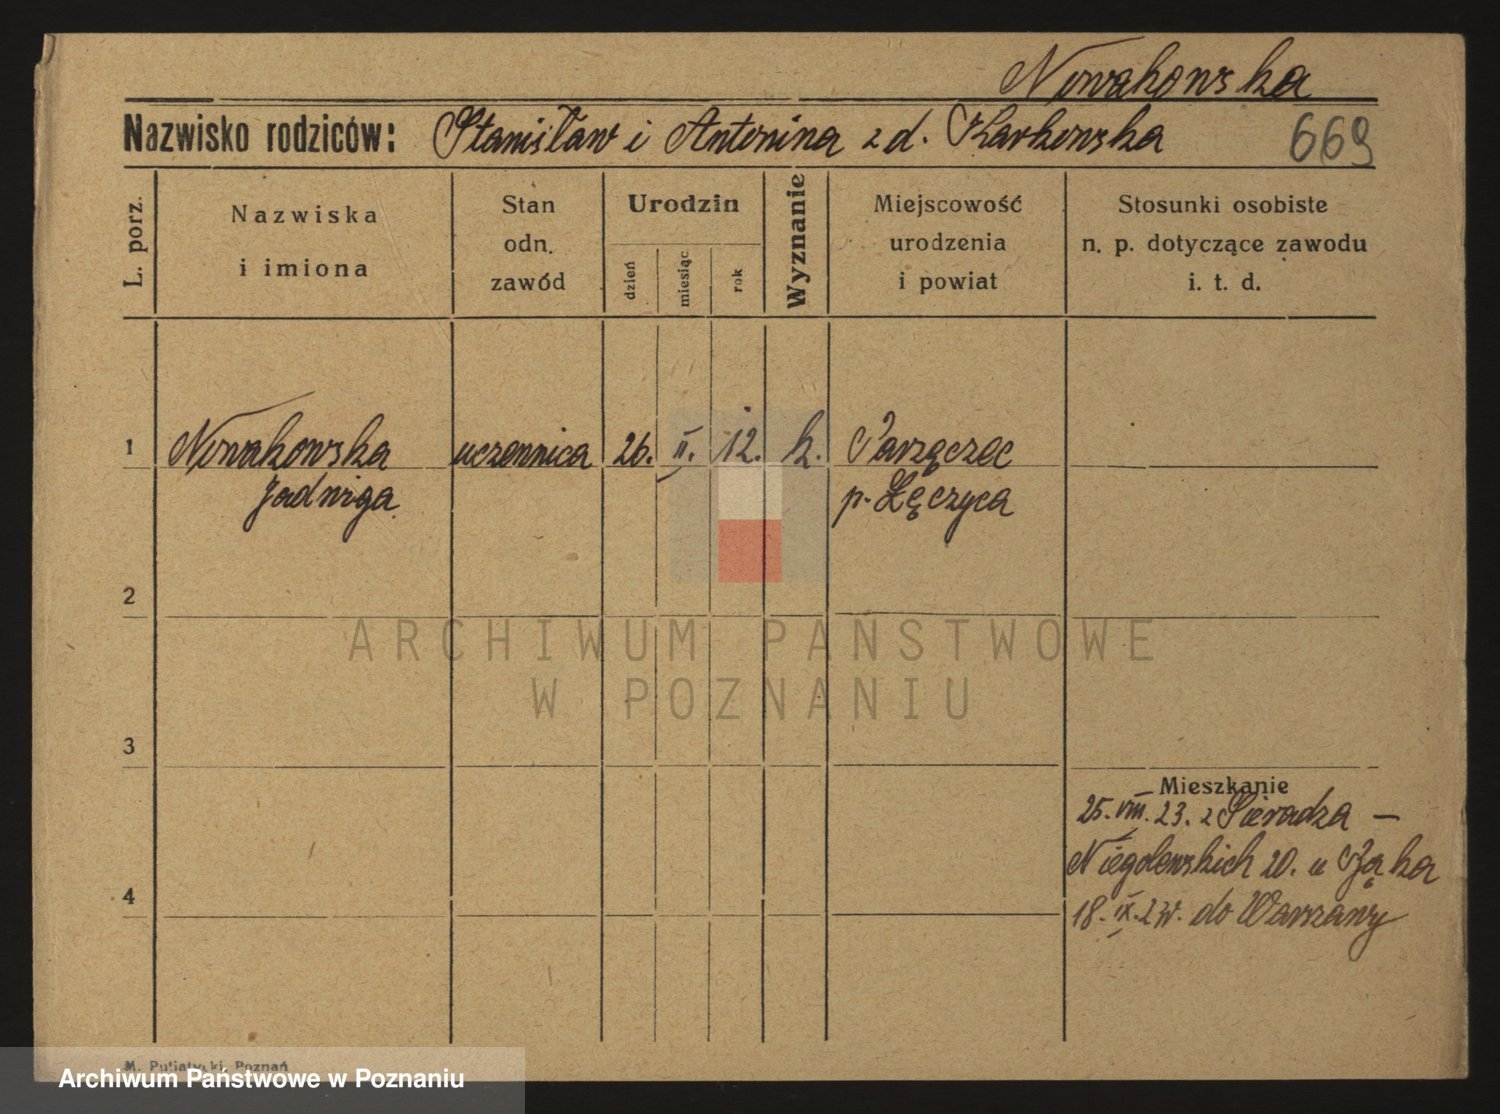 Nowakowska
Nazwisko rodziców: Stanisław i Antonina z d. Karkowska
669
L. porz.
Nazwiska
i imiona
Stan
odn.
zawód
Urodzin
dzień
miesiąc
rok
Wyznanie
Miejscowość
urodzenia
i powiat
Stosunki osobiste
n. p. dotyczące zawodu
i. t. d.
1 Nowakowska uczennica 26. II. 12. k. Parzęczec
Jadwiga. p. Łęczyca
2
3
4
Mieszkanie
25. VIII. 23. z Sieradza —
Niegolewskich 20. u Bąka
18. IX. do Warszawy
ARCHIWUM PAŃSTWOWE
W POZNANIU
M. Poznań
Archiwum Państwowe w Poznaniu